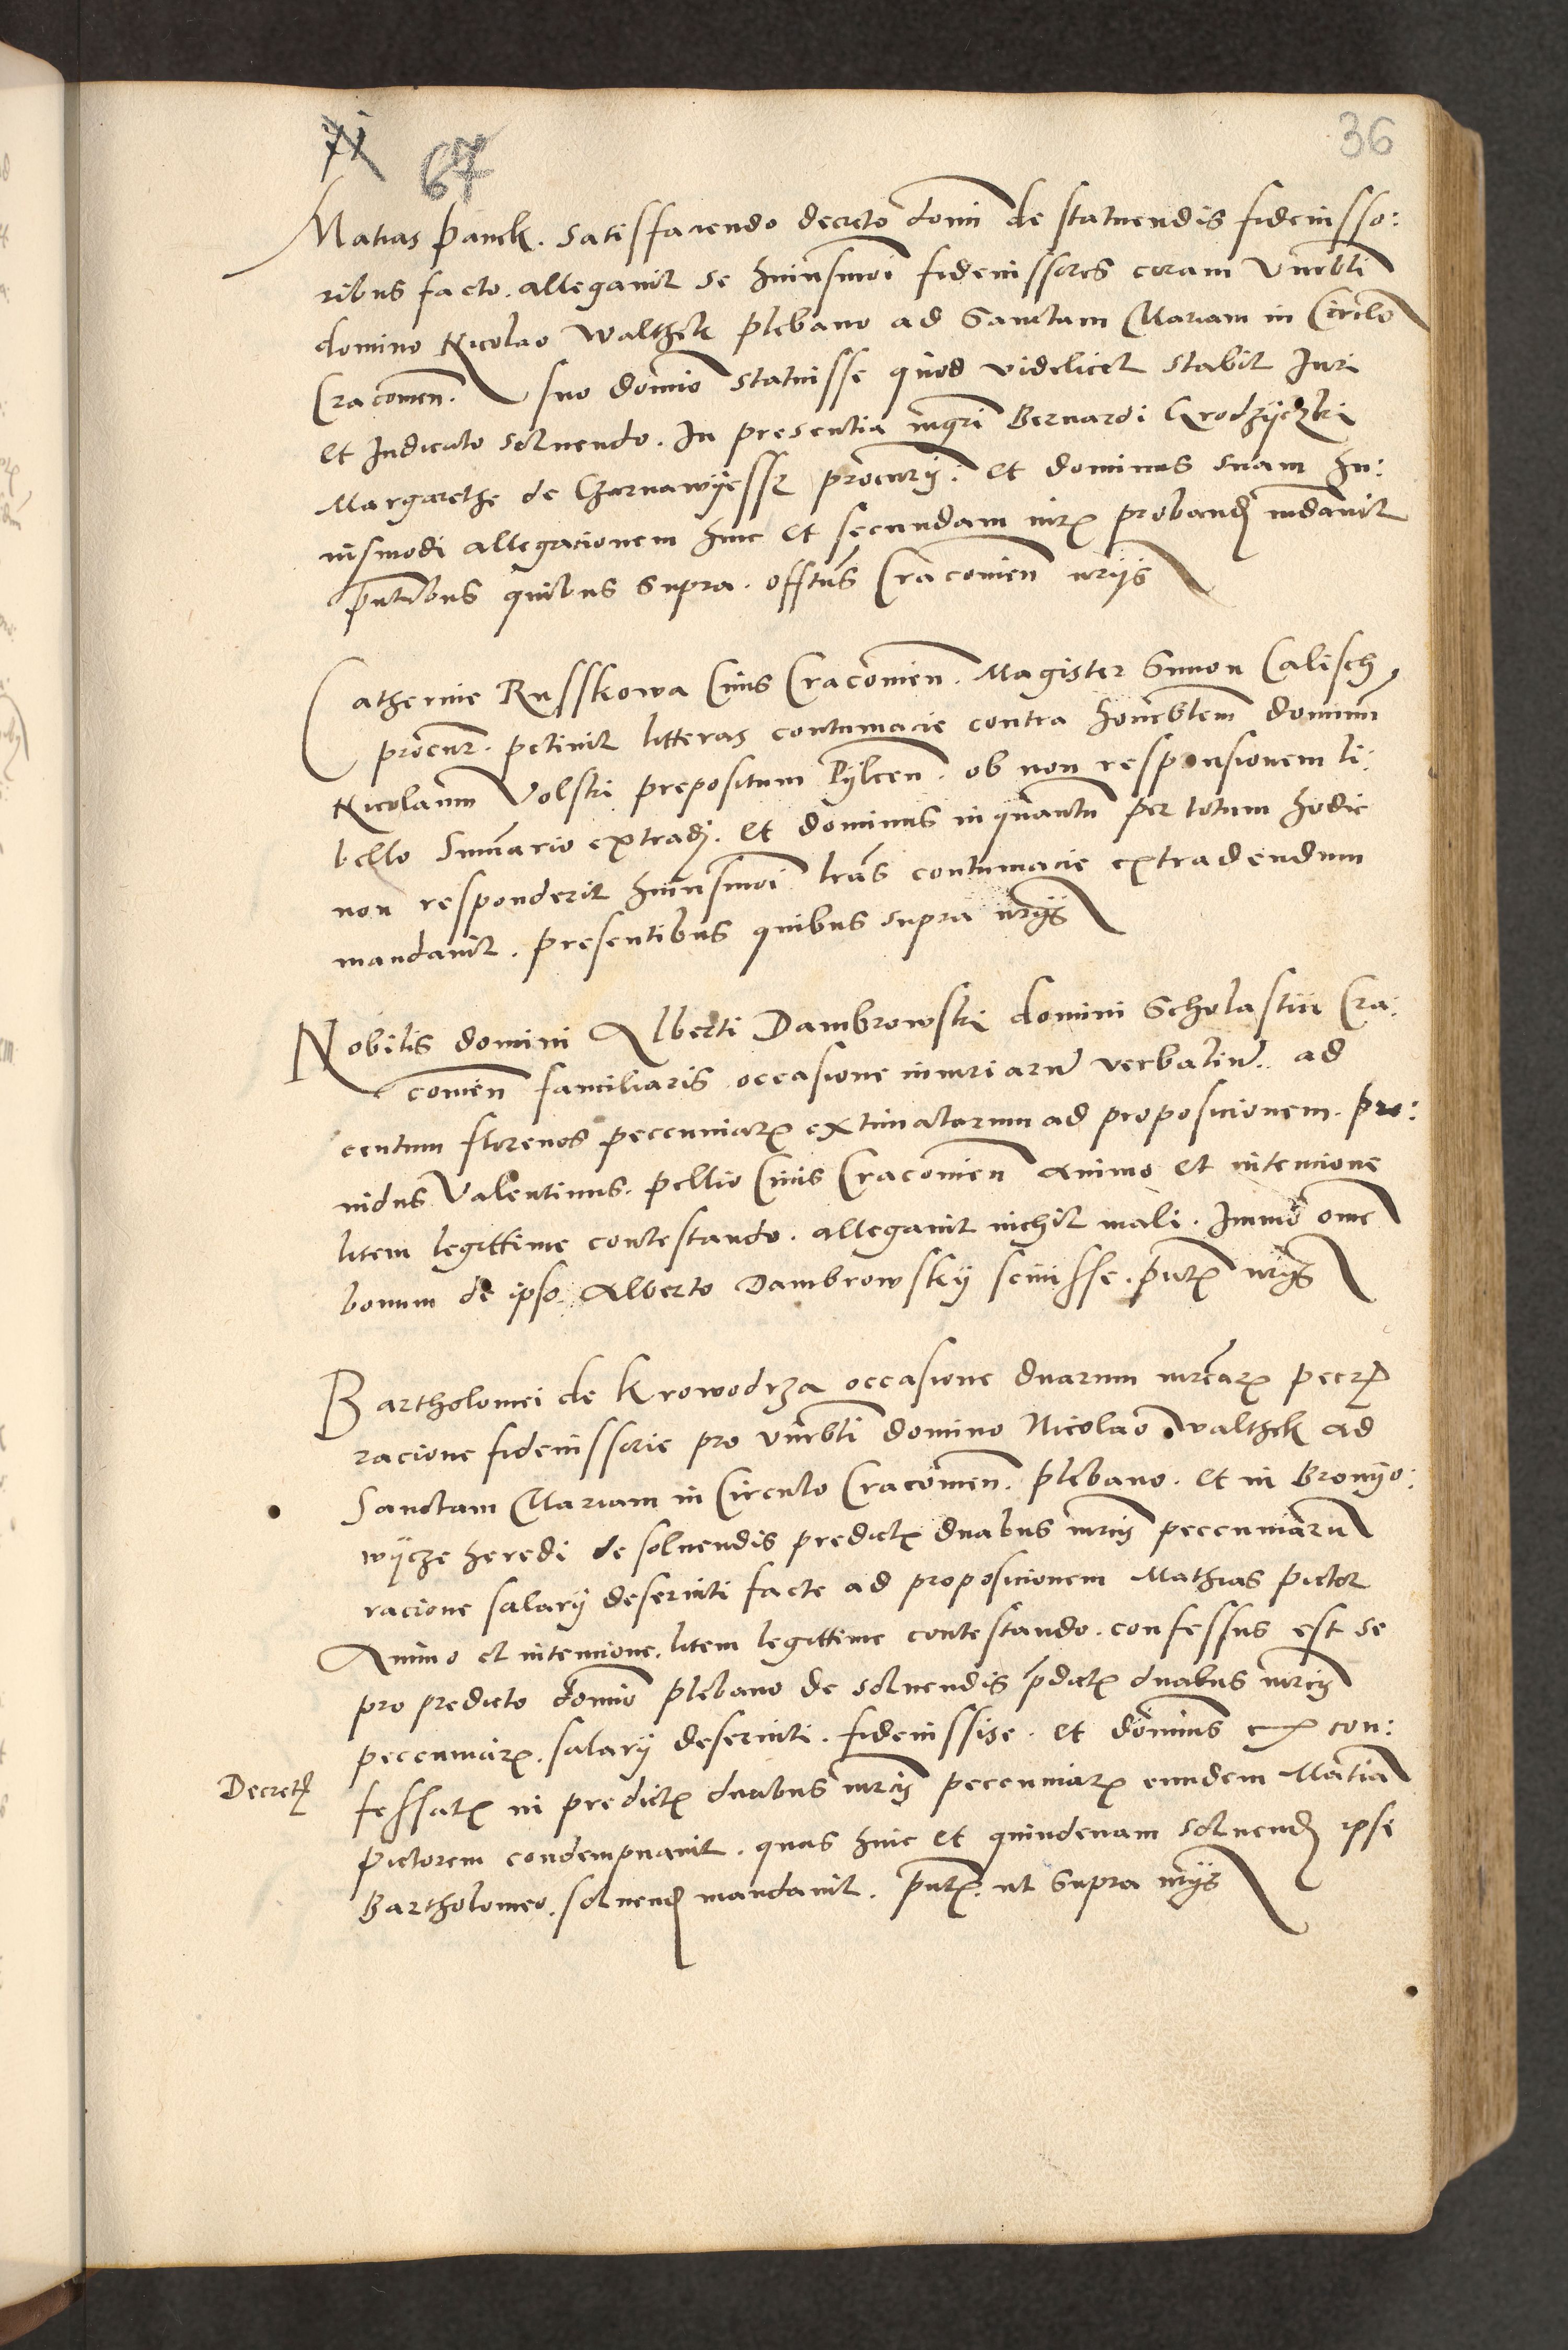 71 67
36
Matias Panck. satisfaciendo decreto domi de statuendis fideiusso:
ribus facto. allegavit se huiusmoi fideiussores coram vnerbli
domino Nicolao Walthek plebano ad Sanctam Mariam in Circlo
Cracovien. suo domino statuisse quod videlicet stabit Juri
et Judicato solvendo. In presentia mgri Bernardi Grodzyczki
Margarethe de Czarnawyessz procurij: et dominus suam hu:
iusmodi allegacionem hinc et secundam iurx probandj mdavit
pntibus quibus supra. offtus Cracovien nrijs
Catherine Russkowa Civis Cracovien. Magister Simon Calisch
procur. petivit litteras contumacie contra honerblem dominum
Nicolaum Volski prepositum Pylcen. ob non responsionem li:
bello sumario extradj. et dominus inquantu per totum hodie
non responderit huiusmoi lras contumacie extradendum
mandavit. presentibus quibus supra nrijs
Nobilis domini Alberti Dambrowski domini Scholastici Cra:
covien familiaris occasione iniuriarum verbalium. ad
centum florenos peccuniarx extimatarum ad proposicionem. pro:
vidus Valentinus. pellio Civis Cracovien animo et intencione
litem legittime contestando. allegavit nichil mali. Immo ome
bonum de ipso Alberto Dambrowsky scivisse. pntx nrijs
Bartholomei de Krowodrza occasione duarum mrcarx peccx
racione fideiussorie pro vnerbli domino Nicolao walthek ad
Sanctam Mariam in Circulo Cracovien. plebano. et in Bronyo:
wycze heredi de solvendis predictx duabus mrcis peccuniarum
racione salarij deserviti facte ad proposicionem Mathias pictor
Animo et intencione. litem legittime contestando. confessus est se
pro predicto domino plebano de solvendis pdictx duabus mrcis
peccuniarx. salarij deserviti. fideiussise. et dominus ex con:
Decretum
fessatx in predictx duabus mrcis peccuniarx eundem Matiam
Pictorem condempnavit. quas hinc et quindenam solvendj ipsi
Bartholomeo. solvendj mandavit. pntx. ut supra nrijs